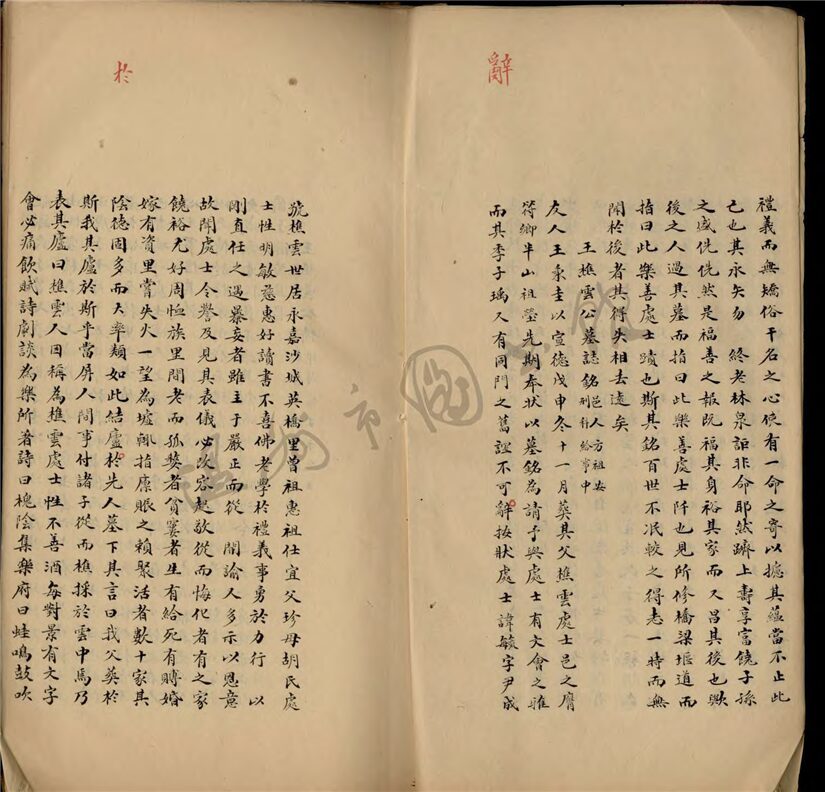 辭
禮義而無矯俗干名之心使有一命之寄以攄其蘊當不止此
己也其永矢勿　終老林泉詎非命耶然躋上壽享富饒子孫
之盛侁侁然是福善之報既福其身裕其家而又昌其後也歟
後之人過其墓而指曰此樂善處士阡也見所修橋梁堰道而
指曰此樂善處士蹟也斯其銘百世不泯較之得志一時而無
聞於後者其得失相去遠矣
王樵雲公墓誌銘 邑人方祖安 刑科給事中
友人王家圭以宣德戊申冬十一月葬其父樵雲處士邑之膺
符鄉半山祖塋先期奉狀以墓銘為請予與處士有文會之雅
而其季子瑀又有同門之舊誼不可辤按狀處士諱毓字尹成
於
號樵雲世居永嘉沙城英橋里曾祖惠祖仕宜父珍母胡氏處
士性明敏慈惠好讀書不喜佛老學於禮義事勇於力行　以
剛直任之遇暴妄者雖主于嚴正而從　開諭人多示以恩意
故聞處士令譽及見其表儀必改容起敬從而悔化者有之家
饒裕尤好周恤族里間老而孤嫠者貧窶者生有給死有賻婚
嫁有資里嘗失火一望為墟輒指廪賑之賴聚活者數十家其
陰德固多而大率類如此結廬扵先人墓下其言曰我父葬於
斯我其廬於斯乎當屏人間事付諸子從而樵採於雲中焉乃
表其廬曰樵雲人因稱為樵雲處士性不善酒每對景有文字
會必痛飲賦詩劇談為樂所著詩曰槐陰集樂府曰蛙鳴鼓吹